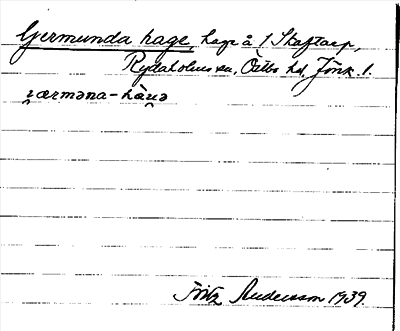 Germunda hage, hage å 1 Skaftarp,
Rydaholms sn, Östbo hd, Jönk. l.
i̯ærməna-hàɡə
Fritz Andersson 1939.